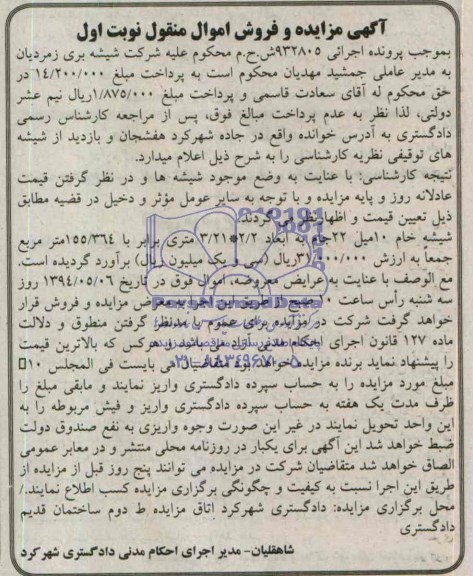 آگهی مزایده و فروش اموال منقول نوبت اول
بموجب پرونده اجرائی ۹۳۲۸۰۵ش.ح.م محکوم علیه شرکت شیشه بری زمردیان
به مدیر عاملی جمشید مهدیان محکوم است به پرداخت مبلغ ۱۴/۲۰۰/۰۰۰ در
حق محکوم له آقای سعادت قاسمی و پرداخت مبلغ ۱/۸۷۵/۰۰۰ریال نیم عشر
دولتی، لذا نظر به عدم پرداخت مبالغ فوق، پس از مراجعه کارشناس رسمی
دادگستری به آدرس خوانده واقع در جاده شهرکرد هفشجان و بازدید از شیشه
های توقیفی نظریه کارشناسی را به شرح ذیل اعلام میدارد.
نتیجه کارشناسی: با عنایت به وضع موجود شیشه ها و در نظر گرفتن قیمت
عادلانه روز و پایه مزایده و با توجه به سایر عومل مؤثر و دخیل در قضیه مطابق
ذیل تعیین قیمت و اظهارنظر می گردند.
شیشه خام ۱۰میل ۲۲جام به ابعاد ۲/۲*۳/۲۱ متری برابر با ۱۵۵/۳۶۴متر مربع
جمعاً به ارزش ۳۱/۰۰۰/۰۰۰ریال (سی و یک میلیون ریال) برآورد گردیده است.
مع الوصف با عنایت به عرایض معروضه، اموال فوق در تاریخ ۱۳۹۴/۰۵/۰۶ روز
سه شنبه رأس ساعت ۱۰ صبح از طریق این اجرا به معرض مزایده و فروش قرار
خواهد گرفت شرکت در مزایده برای عموم با مدنظر گرفتن منطوق و دلالت
ماده ۱۲۷ قانون اجرای احکام مدنی آزاد می باشد، هرکس که بالاترین قیمت
را پیشنهاد نماید برنده مزایده خواهد بود متقاضیان می بایست فی المجلس ۱۰
مبلغ مورد مزایده را به حساب سپرده دادگستری واریز نمایند و مابقی مبلغ را
ظرف مدت یک هفته به حساب سپرده دادگستری واریز و فیش مربوطه را به
این واحد تحویل نمایند در غیر این صورت وجوه واریزی به نفع صندوق دولت
ضبط خواهد شد این آگهی برای یکبار در روزنامه محلی منتشر و در معابر عمومی
الصاق خواهد شد متقاضیان شرکت در مزایده می توانند پنج روز قبل از مزایده از
طریق این اجرا نسبت به کیفیت و چگونگی برگزاری مزایده کسب اطلاع نمایند./
محل برگزاری مزایده: دادگستری شهرکرد اتاق مزایده ط دوم ساختمان قدیم
دادگستری
شاهقلیان- مدیر اجرای احکام مدنی دادگستری شهر کرد